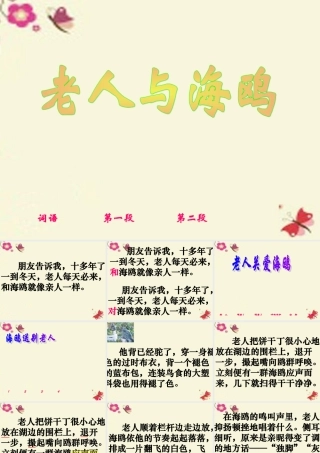 老人与海鸥
词语 第一段 第二段
朋友告诉我,十多年了
一到冬天,老人每天必来,
和海鸥就像亲人一样。
朋友告诉我,十多年了
一到冬天,老人每天必来,
和海鸥就像亲人一样。
朋友告诉我,十多年了
一到冬天,老人每天必来,
对海鸥就像亲人一样。
老人关爱海鸥
海鸥送别老人
他背已经驼了,穿一身褪
色的过时布衣,背一个褪色
的蓝布包,连装鸟食的大塑
料袋也用得褪了色。
老人把饼干丁很小心地
放在湖边的围栏上,退开
一步,撮起嘴向鸥群呼唤。
立刻便有一群海鸥应声而
来,几下就扫得干干净净。
老人把饼干丁很小心地
放在湖边的围栏上,退开
一步,撮起嘴向鸥群呼唤。
立刻便有一群海鸥应声而
老人顺着栏杆边走边放,
海鸥依他的节奏起起落落,
排成一片翻飞的白色,飞
在海鸥的鸣叫声里,老人
抑扬顿挫地唱着什么。侧耳
细听,原来是亲昵得变了调
的地方话——“独脚”“灰